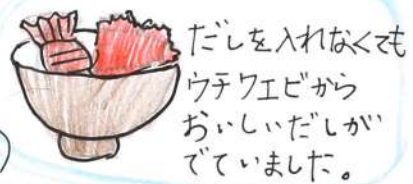 だしを入れなくても
ウチワエビから
おいしいだしが
でていました。